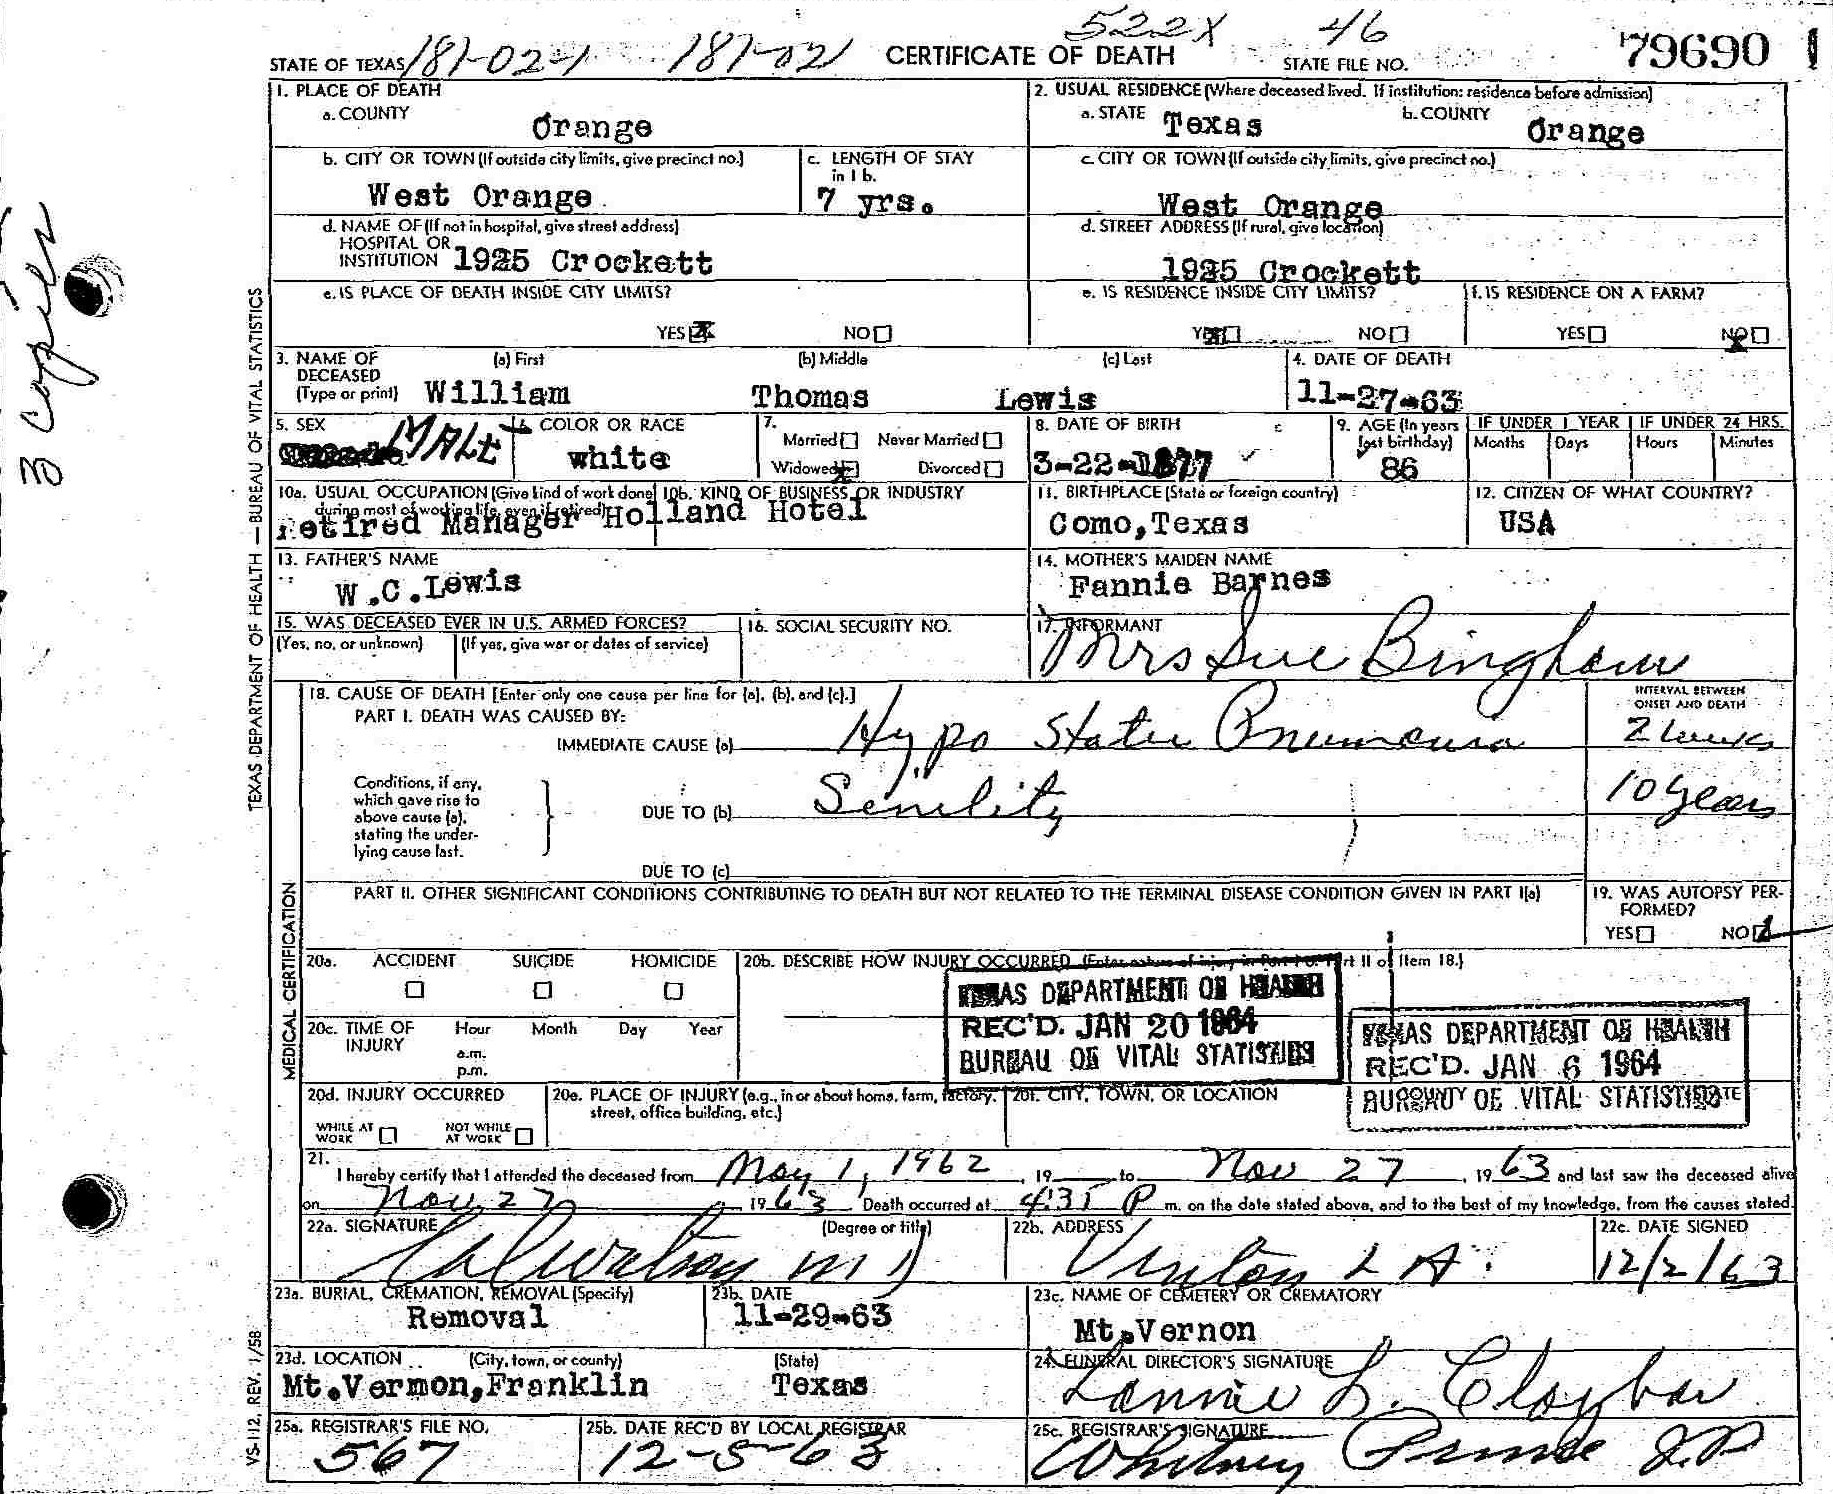 522X 46
STATE OF TEXAS 181-02-1 181-021 CERTIFICATE OF DEATH STATE FILE NO. 79690
3 Copies
TEXAS DEPARTMENT OF HEALTH — BUREAU OF VITAL STATISTICS
VS-112, REV. 1/58
1. PLACE OF DEATH
a. COUNTY
Orange
2. USUAL RESIDENCE (Where deceased lived. If institution: residence before admission)
a. STATE Texas b. COUNTY Orange
b. CITY OR TOWN (If outside city limits, give precinct no.)
West Orange
c. LENGTH OF STAY
in 1 b.
7 yrs.
c. CITY OR TOWN (If outside city limits, give precinct no.)
West Orange
d. NAME OF (If not in hospital, give street address)
HOSPITAL OR
INSTITUTION 1925 Crockett
d. STREET ADDRESS (If rural, give location)
1925 Crockett
e. IS PLACE OF DEATH INSIDE CITY LIMITS?
YES X NO
e. IS RESIDENCE INSIDE CITY LIMITS?
YES NO
f. IS RESIDENCE ON A FARM?
YES NO
3. NAME OF
DECEASED
(Type or print)
(a) First (b) Middle (c) Last
William Thomas Lewis
4. DATE OF DEATH
11-27-63
5. SEX
MALE
6. COLOR OR RACE
white
7.
Married Never Married
Widowed Divorced
8. DATE OF BIRTH
3-22-1877
9. AGE (In years
last birthday)
86
IF UNDER 1 YEAR IF UNDER 24 HRS.
Months Days Hours Minutes
10a. USUAL OCCUPATION (Give kind of work done
during most of working life, even if retired)
10b. KIND OF BUSINESS OR INDUSTRY
retired Manager Holland Hotel
11. BIRTHPLACE (State or foreign country)
Como, Texas
12. CITIZEN OF WHAT COUNTRY?
USA
13. FATHER'S NAME
W.C.Lewis
14. MOTHER'S MAIDEN NAME
Fannie Barnes
15. WAS DECEASED EVER IN U.S. ARMED FORCES?
(Yes, no, or unknown) (If yes, give war or dates of service)
16. SOCIAL SECURITY NO.
17. INFORMANT
Mrs Sue Bingham
MEDICAL CERTIFICATION
18. CAUSE OF DEATH [Enter only one cause per line for (a), (b), and (c).]
PART I. DEATH WAS CAUSED BY:
IMMEDIATE CAUSE (a) Hypo Static Pneumonia
INTERVAL BETWEEN
ONSET AND DEATH
2 weeks
Conditions, if any,
which gave rise to
above cause (a),
stating the under-
lying cause last.
DUE TO (b) Senility 10 years
DUE TO (c)
PART II. OTHER SIGNIFICANT CONDITIONS CONTRIBUTING TO DEATH BUT NOT RELATED TO THE TERMINAL DISEASE CONDITION GIVEN IN PART I(a)
19. WAS AUTOPSY PER-
FORMED?
YES NO
20a. ACCIDENT SUICIDE HOMICIDE
20b. DESCRIBE HOW INJURY OCCURRED (Enter nature of injury in Part I or Part II of Item 18.)
20c. TIME OF
INJURY
Hour Month Day Year
a.m.
p.m.
TEXAS DEPARTMENT OF HEALTH
REC'D. JAN 20 1964
BUREAU OF VITAL STATISTICS
TEXAS DEPARTMENT OF HEALTH
REC'D. JAN 6 1964
BUREAU OF VITAL STATISTICS
20d. INJURY OCCURRED
WHILE AT
WORK
NOT WHILE
AT WORK
20e. PLACE OF INJURY (e.g., in or about home, farm, factory,
street, office building, etc.)
20f. CITY, TOWN, OR LOCATION
21.
I hereby certify that I attended the deceased from May 1, 1962, 19 to Nov 27, 1963 and last saw the deceased alive
on Nov 27 1963. Death occurred at 4:35 P m. on the date stated above, and to the best of my knowledge, from the causes stated.
22a. SIGNATURE (Degree or title)
Watson MD
22b. ADDRESS
Vinton LA.
22c. DATE SIGNED
12/2/63
23a. BURIAL, CREMATION, REMOVAL (Specify)
Removal
23b. DATE
11-29-63
23c. NAME OF CEMETERY OR CREMATORY
Mt.Vernon
23d. LOCATION (City, town, or county) (State)
Mt.Vermon,Franklin Texas
24. FUNERAL DIRECTOR'S SIGNATURE
Lannie L. Claybar
25a. REGISTRAR'S FILE NO.
567
25b. DATE REC'D BY LOCAL REGISTRAR
12-5-63
25c. REGISTRAR'S SIGNATURE
Whitney Prince J.P